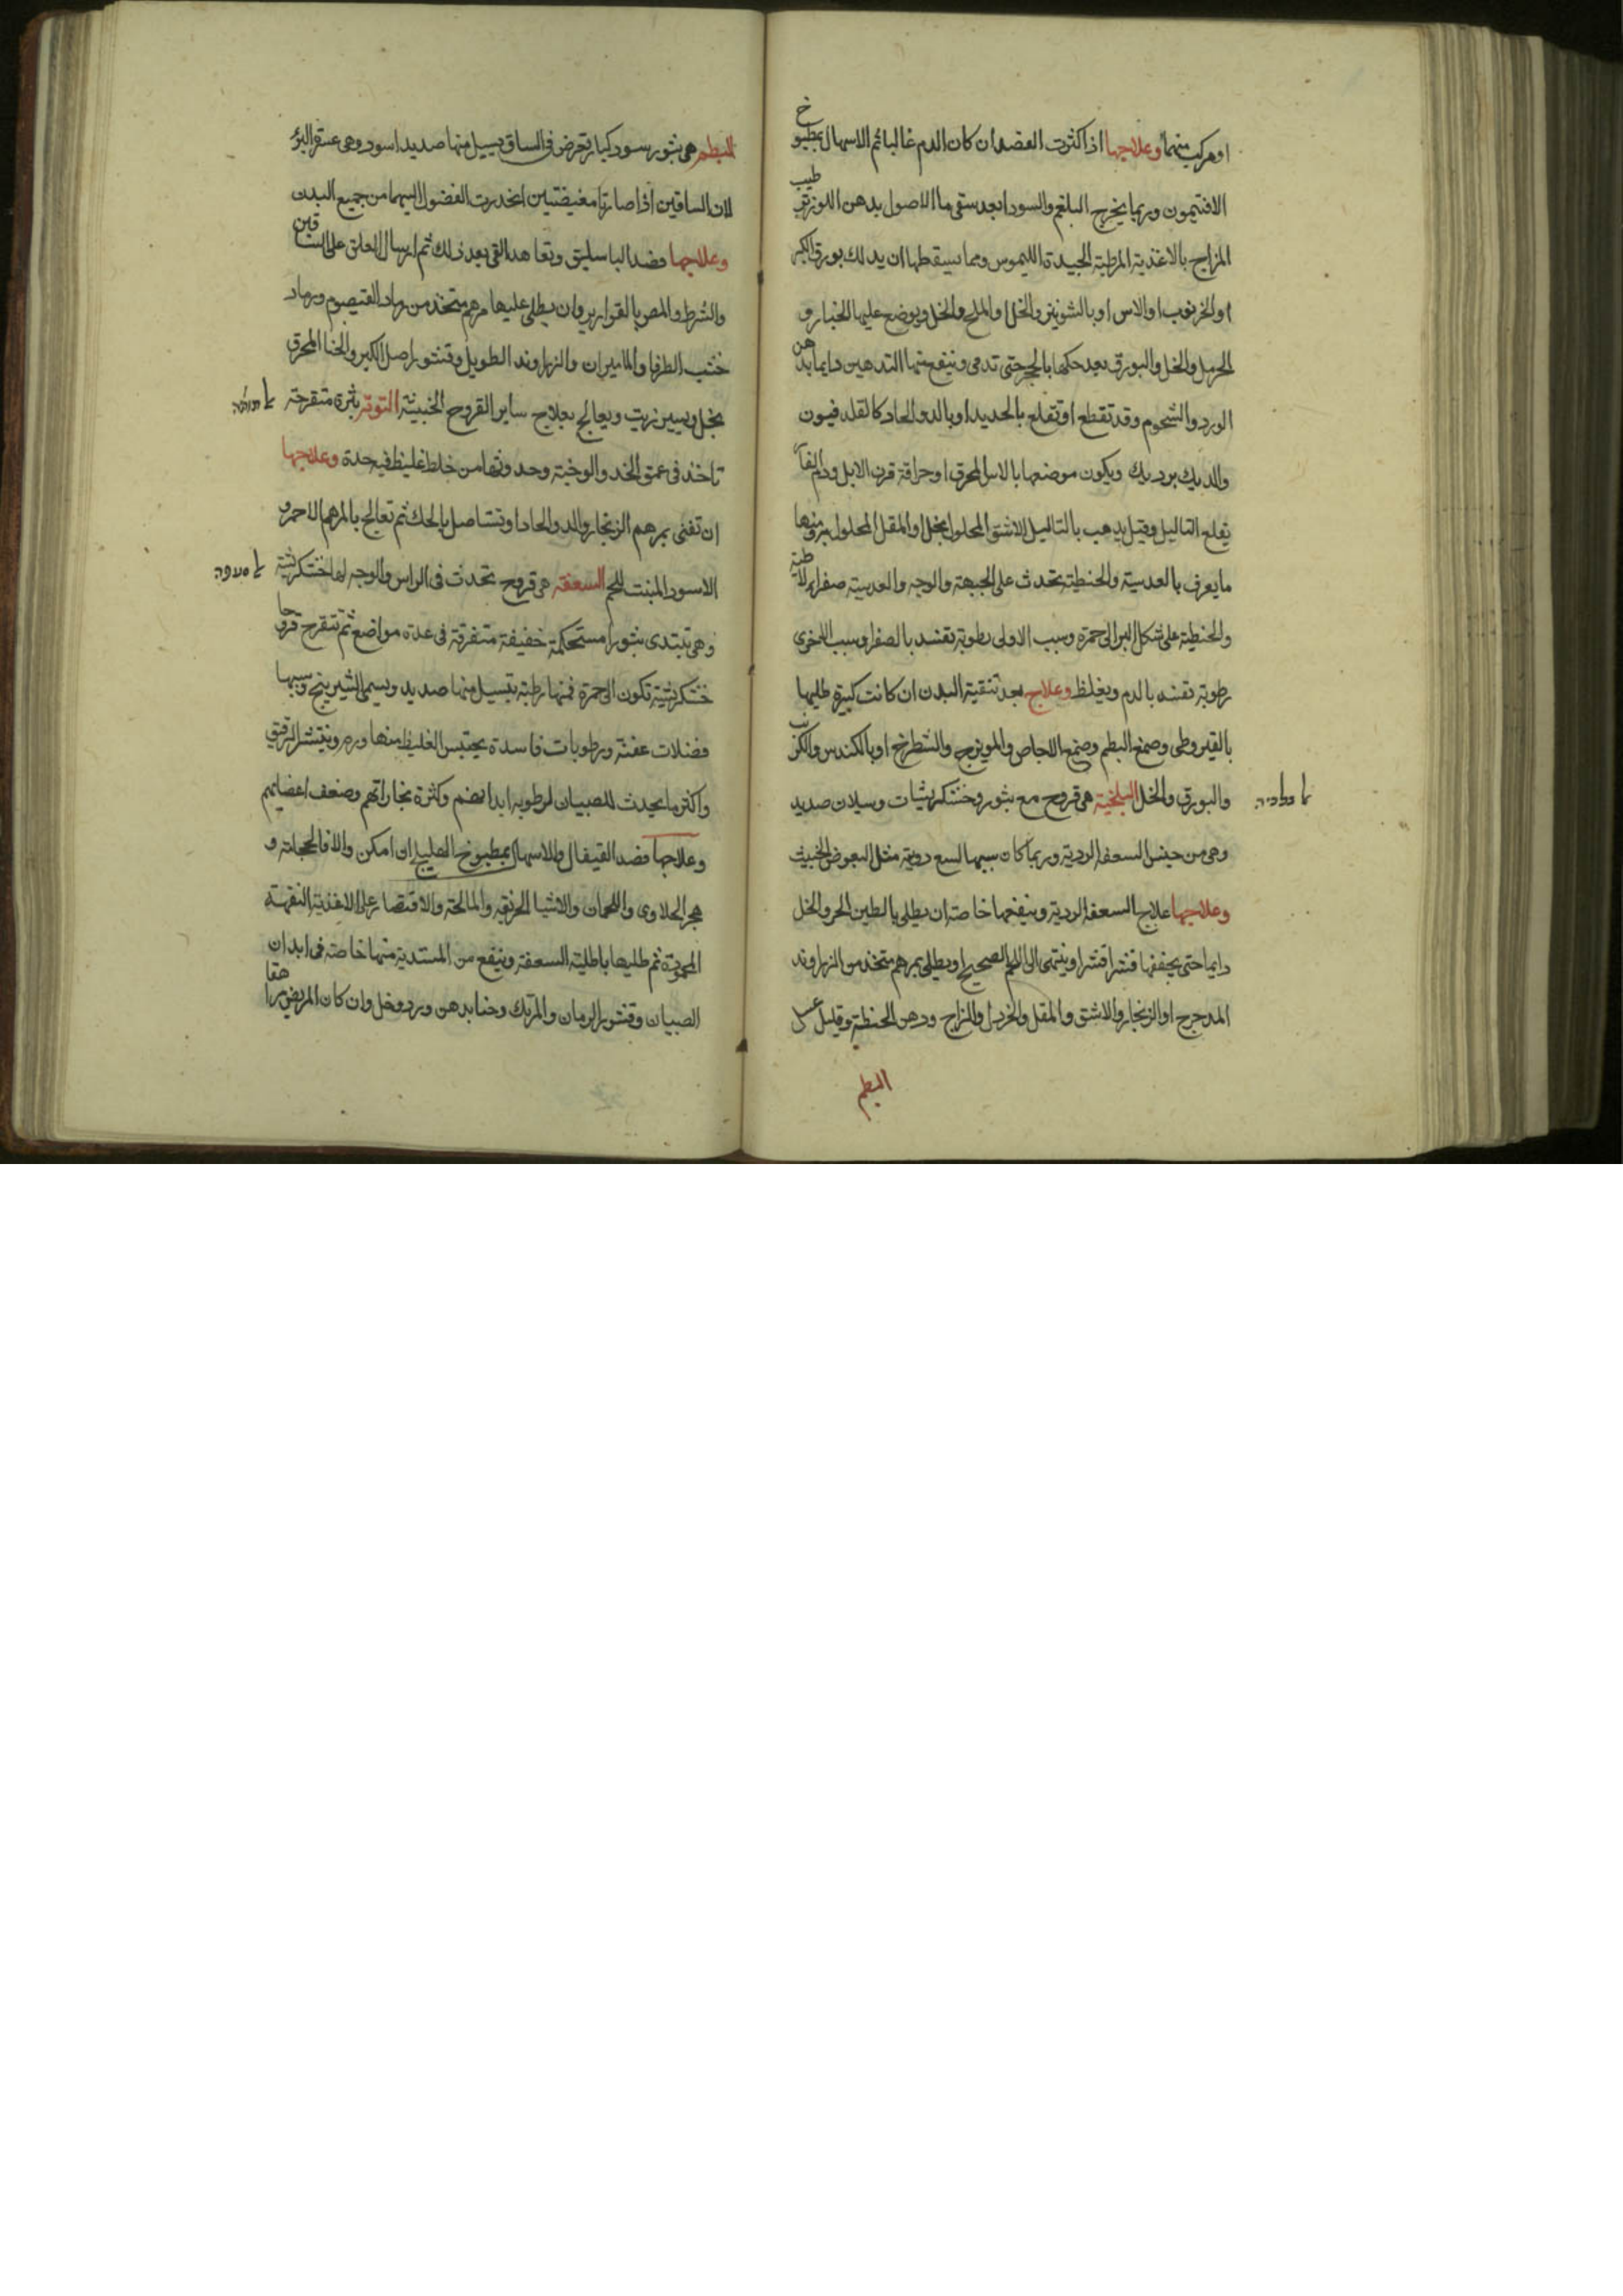 او مركب منهما وعلاجها اذا كثرت الفصد ان كان الدم غالبا ثم الاسهال بمطبوخ
الافتيمون وربما يخرج البلغم والسودا بعد سقى ما الاصول بدهن اللوز ترطيب
المزاج بالاغذية المرطبة الجيدة الكيموس ومما يسقطها ان يدلك بورق الكبر
او الخرنوب او الاس او بالشونيز والخل او الملح والخل ويوضع عليها الخبار و
الحرمل والخل والبورق بعد حكها بالحجر حتى تدمى وينفع منها التدهين دايما بدهن
الورد والشحوم وقد تقطع او تقلع بالحديد او بالدوا الحاد كالقلدفيون
والديك برديك ويكون موضعها بالاس المحرق او حراقة قرن الايل ودايما
يقلع التاليل وقيل يذهب بالتاليل الاشق المحلول بخل او المقل المحلول ومنها
ما يعرف بالعدسية والحنطية تحدث على الجبهة والوجه والعدسية صفرا لاطية
والحنطية على شكل البر الى حمرة وسبب الاولى رطوبة تفسد بالصفرا وسبب الاخرى
رطوبة تفسد بالدم ويغلظ وعلاج بعد تنقية البدن ان كانت كبيرة طليها
بالقيروطى وصمغ البطم وصمغ الاجاص والمويزج والشطرج او بالكندس والكرنب
والبورق والخل البلخية هى قروح مع بثور وخشكريشات وسيلان صديد
وهى من جنس السعفة الردية وربما كان سببها لسع ردية مثل البعوض الخبيث
وعلاجها علاج السعفة الردية وينفعها خاصة ان يطلى بالطين الحر والخل
دايما حتى يجففها قشرا قشرا وينتهى الى اللحم الصحيح او يطلى بمرهم متخذ من الزراوند
المدحرج او الزنجار والاشق والمقل والخردل والزاج ودهن الحنطة وقليل عسل
البطم
البطم هى بثور سود كبار تعرض فى الساق يسيل منها صديد اسود وهى عسرة البرؤ
لان الساقين اذا صارتا مغيضتين انحدرت الفضول اليهما من جميع البدن
وعلاجها فصد الباسليق وتعاهد القى بعد ذلك ثم ارسال العلق على الساقين
والشرط والمص بالقوارير وان يطلى عليها مرهم متخذ من رماد القيصوم ورماد
خشب الطرفا والماميران والزراوند الطويل وقشور اصل الكبر والحنا المحرق
بخل ويسير زيت ويعالج بعلاج ساير القروح الخبيثة التوتة بثرة متقرحة
تاخذ فى عمق الخد والوجنة وحدوثها من خلط غليظ فيه حدة وعلاجها
ان تفنى بمرهم الزنجار والدوا الحاد او تستاصل بالحك ثم تعالج بالمرهم الاحمر و
الاسود المنبت للحم السعفة هى قروح تحدث فى الراس والوجه لها خشكريشة
وهى تبتدى بثورا مستحكمة خفيفة متفرقة فى عدة مواضع ثم تتقرح قروحا
خشكريشية تكون الى حمرة فمنها رطبة يسيل منها صديد ويسمى الشيرينج وسببها
فضلات عفنة ورطوبات فاسدة يحتبس الغليظ منها ورم وينتشر الرقيق
واكثر ما يحدث للصبيان لرطوبة ابدانهم وكثرة بخاراتهم وضعف اعضايهم
وعلاجها فصد القيفال والاسهال بمطبوخ الهليلج ان امكن والا فالحجامة و
هجر الحلاوى واللحمان والاشيا الحريفة والمالحة والاقتصار على الاغذية التفهة
المحمودة ثم طليها باطلية السعفة وينفع من المبتدية منها خاصة فى ابدان
الصبيان وقشور الرمان والمرتك وحنا بدهن ورد وخل وان كان المريض مراهقا